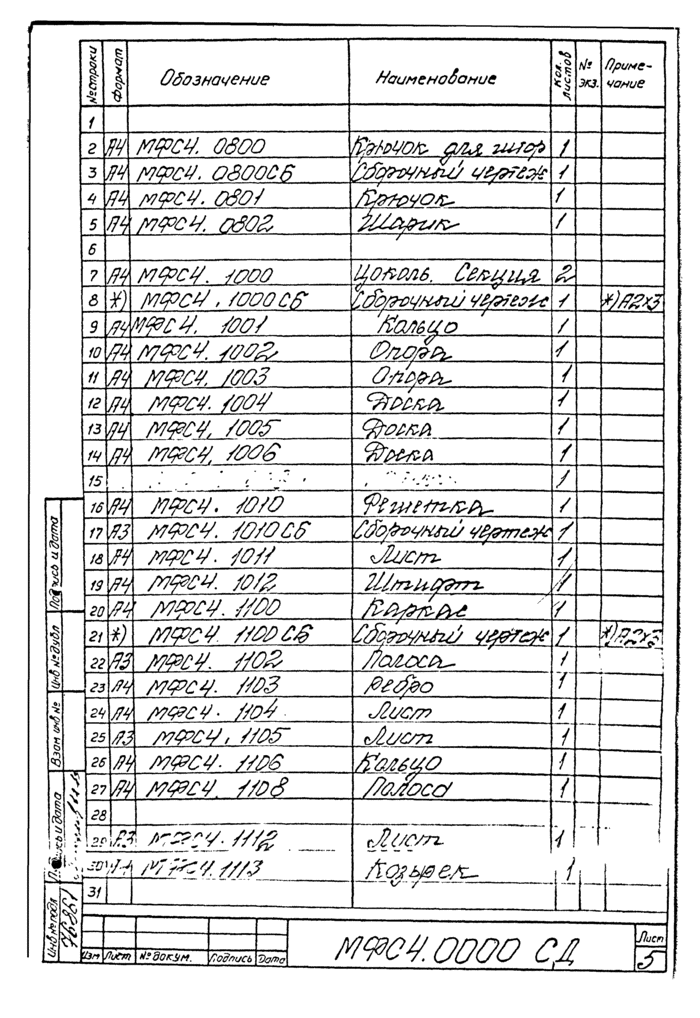 № строки Формат Обозначение Наименование Кол. листов № экз. Приме-чание
1
2 А4 МФС4. 0800 Крючок для штор 1
3 А4 МФС4. 0800СБ Сборочный чертеж 1
4 А4 МФС4. 0801 Крючок 1
5 А4 МФС4. 0802 Шарик 1
6
7 А4 МФС4. 1000 Цоколь. Секция 2
8 *) МФС4. 1000СБ Сборочный чертеж 1 *)А2х3
9 А4 МФС4. 1001 Кольцо 1
10 А4 МФС4. 1002 Опора 1
11 А4 МФС4. 1003 Опора 1
12 А4 МФС4. 1004 Доска 1
13 А4 МФС4. 1005 Доска 1
14 А4 МФС4. 1006 Доска 1
15 1
16 А4 МФС4. 1010 Решетка 1
17 А3 МФС4. 1010СБ Сборочный чертеж 1
18 А4 МФС4. 1011 Лист 1
19 А4 МФС4. 1012 Штифт 1
20 А4 МФС4. 1100 Каркас 1
21 *) МФС4. 1100СБ Сборочный чертеж 1 *)А2х3
22 А3 МФС4. 1102 Полоса 1
23 А4 МФС4. 1103 Ребро 1
24 А4 МФС4. 1104 Лист 1
25 А3 МФС4. 1105 Лист 1
26 А4 МФС4. 1106 Кольцо 1
27 А4 МФС4. 1108 Полоса 1
28
29 А3 МФС4. 1112 Лист 1
30 МФС4. 1113 Козырек 1
31
Подпись и дата
Инв № дубл
Взам инв №
Подпись и дата
Инв № подл
76861
Изм Лист № докум. Подпись Дата
МФС4.0000 СД
Лист
5